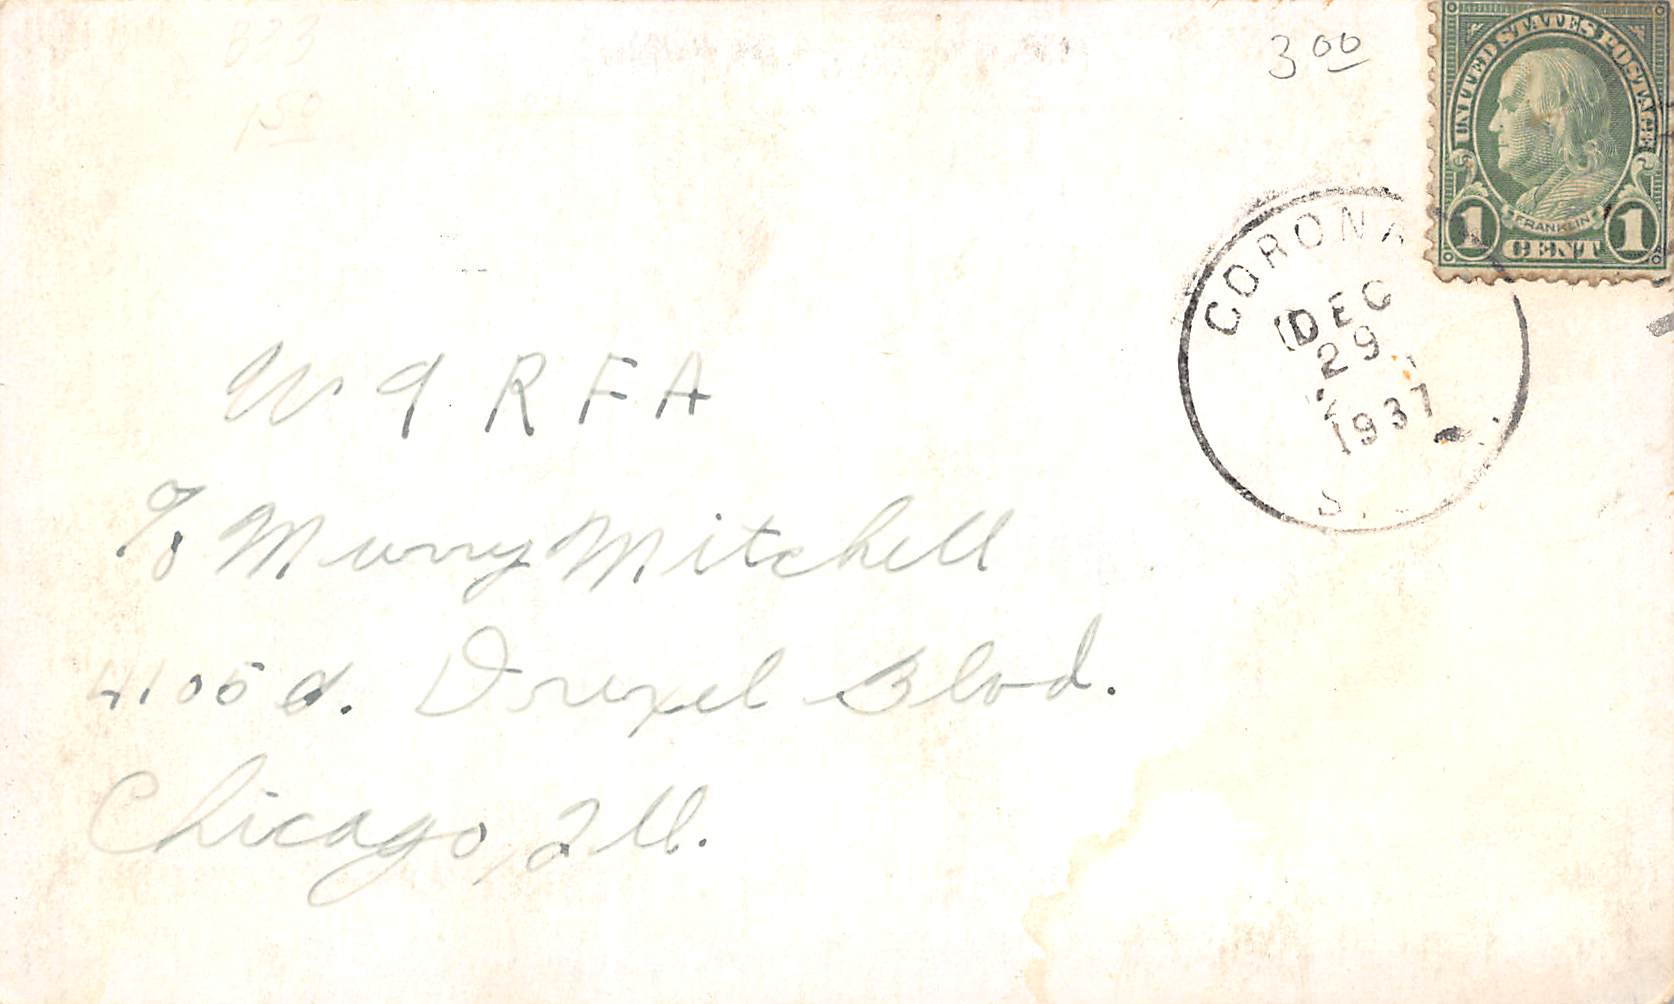 823
1 50
3 00
UNITED STATES POSTAGE
FRANKLIN
1 CENT 1
CORONA
DEC
29
1937
S.
W 9 R F A
% Murry Mitchell
4105 S. Drexel Blvd.
Chicago, Ill.